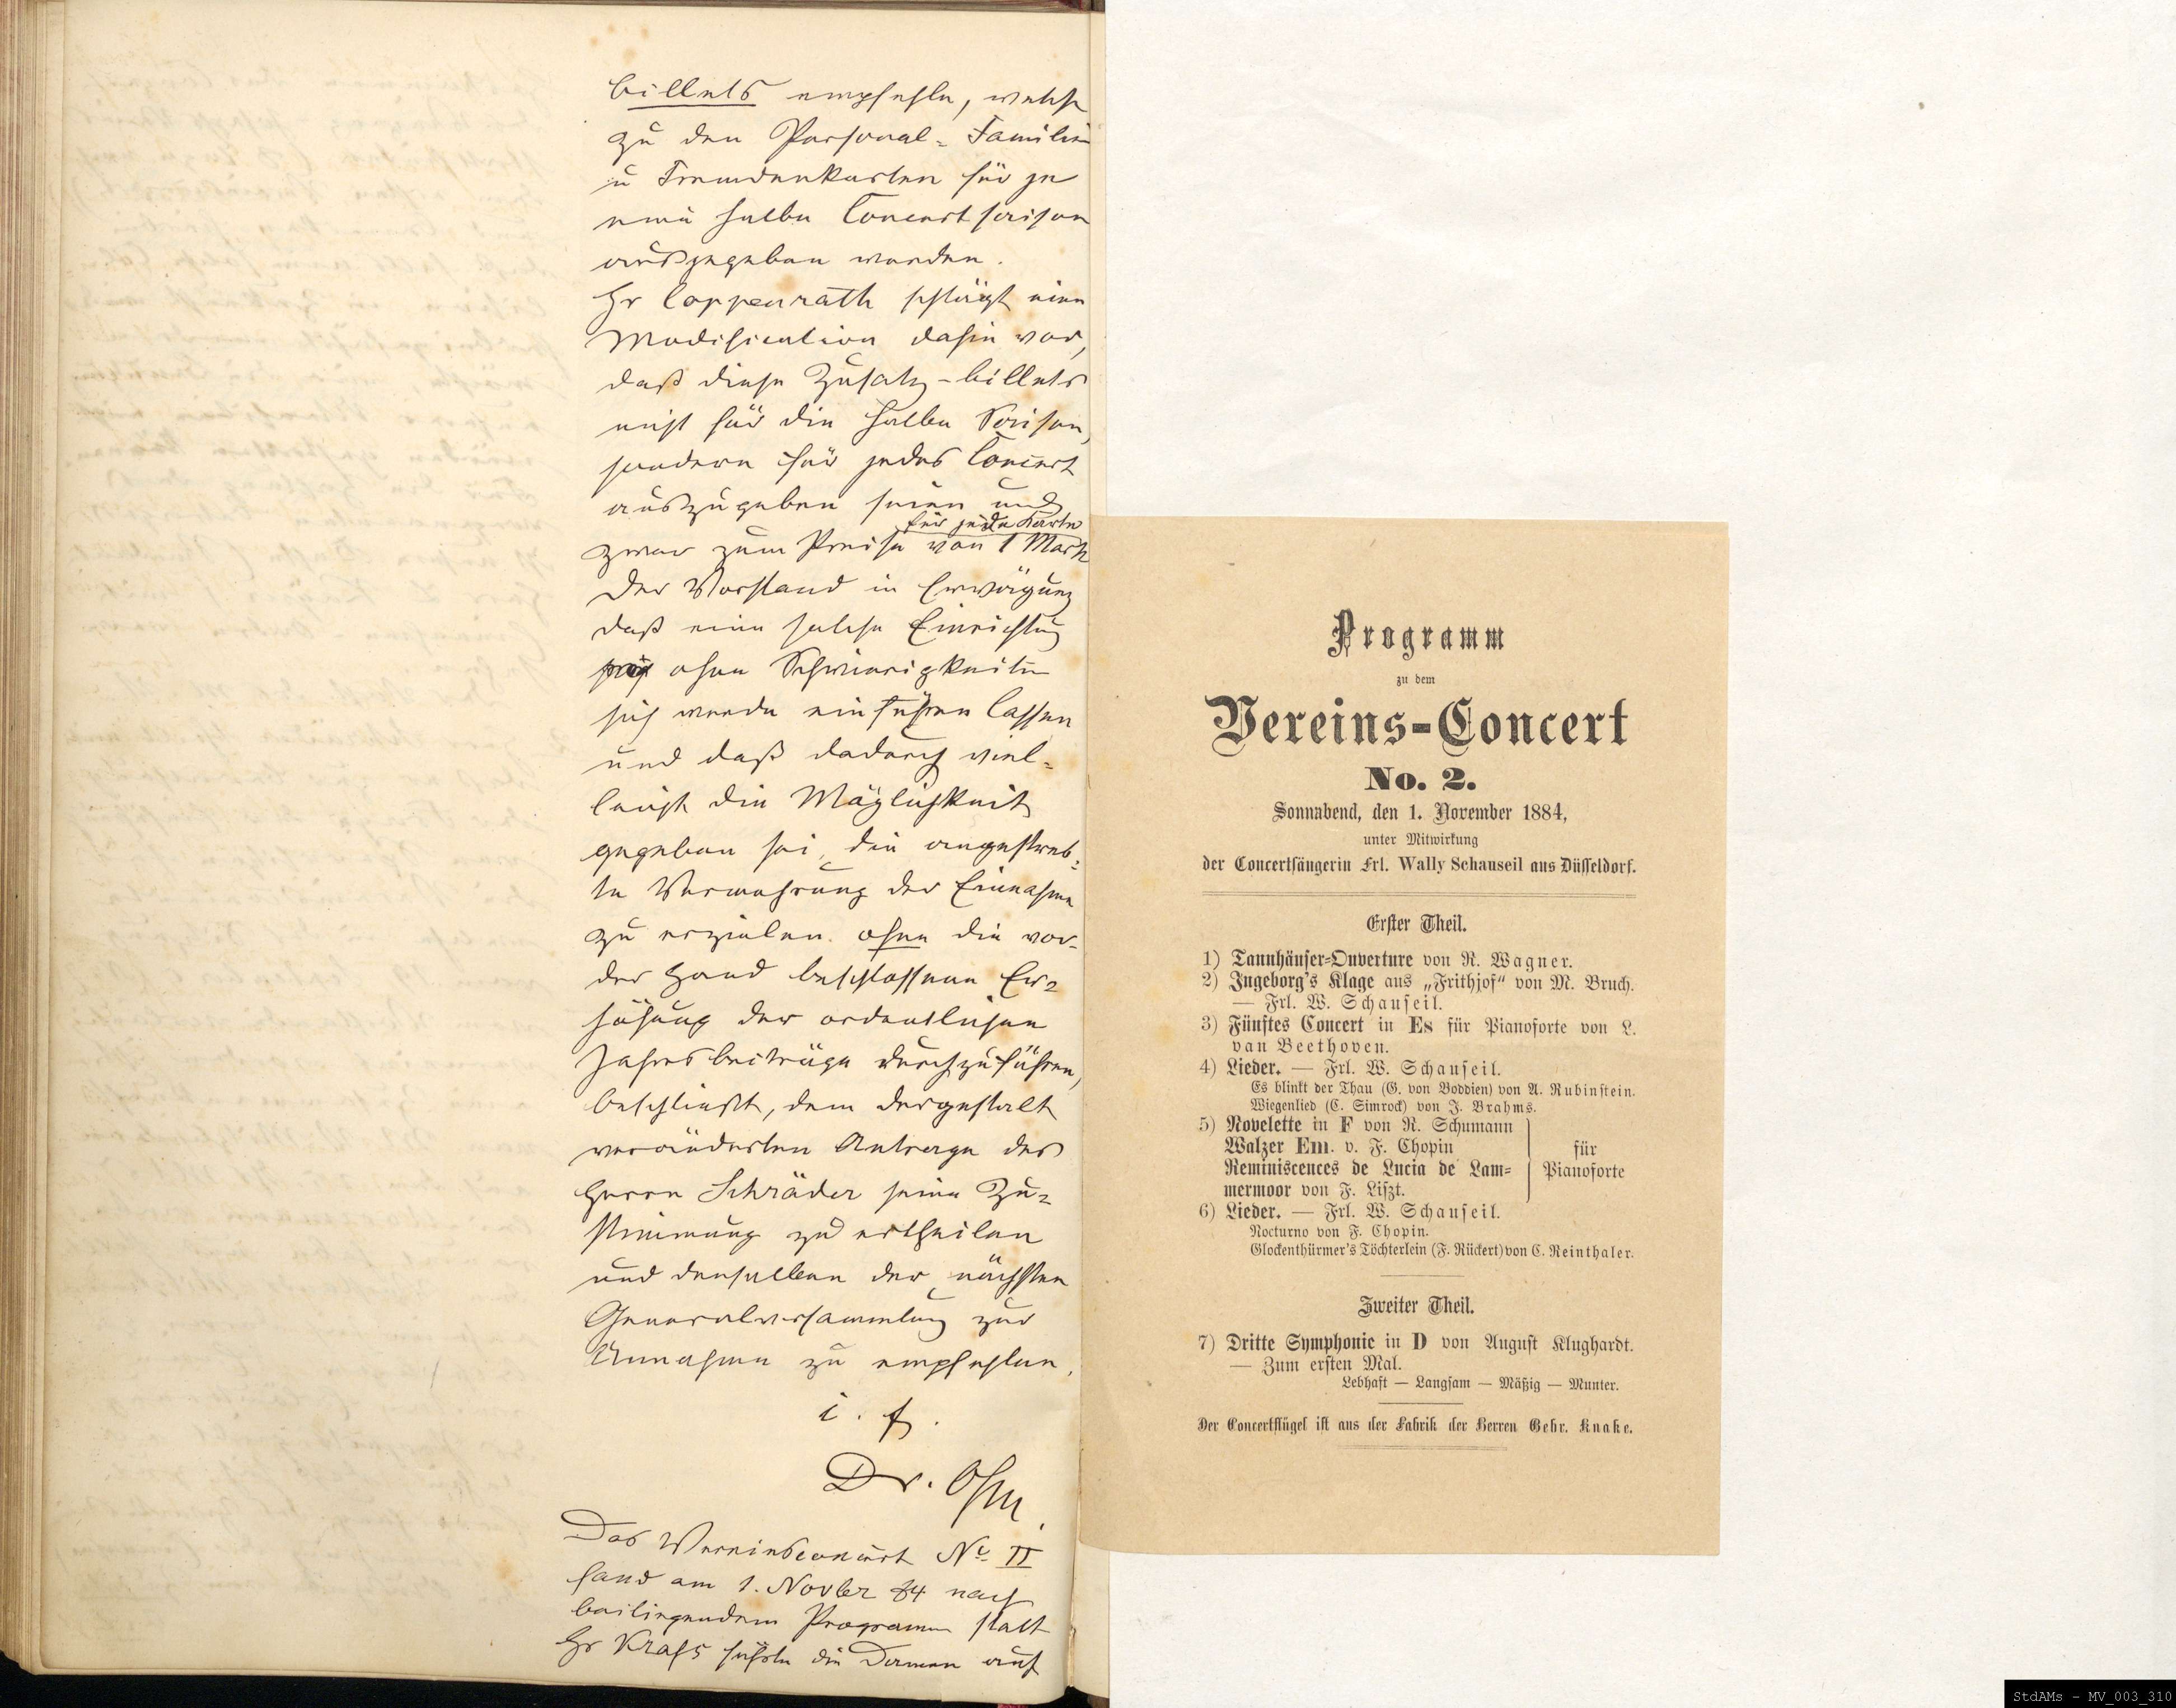 billets empfehle, welche
zu den Personal- Familien
u Fremdenkarten für je
eine halbe Concertsaison
ausgegeben werden.
Hr Coppenrath schlägt eine
Modification dahin vor,
daß diese Zusatz-billets
nicht für die halbe Saison,
sondern für jedes Concert
auszugeben seien und
für jede Karte
zwar zum Preise von 1 Mark
Der Vorstand in Erwägung
daß eine solche Einrichtung
ohne Schwierigkeiten
sich werde einführen lassen
und daß dadurch viel-
leicht die Möglichkeit
gegeben sei, die angestreb-
te Vermehrung der Einnahme
zu erzielen ohne die vor-
der Hand beschlossene Er-
höhung der ordentlichen
Jahresbeiträge durchzuführen,
beschließt, dem dergestalt
veränderten Antrage des
Herrn Schräder seine Zu-
stimmung zu ertheilen
und denselben der nächsten
Generalversammlung zur
Annahme zu empfehlen.
i. f.
Dr. Ohm
Das Vereinsconcert No II
fand am 1. Novber 84 nach
beiliegendem Programm statt
Hr Krass führte die Damen auf
Programm
zu dem
Vereins-Concert
No. 2.
Sonnabend, den 1. November 1884,
unter Mitwirkung
der Concertsängerin Frl. Wally Schauseil aus Düsseldorf.
Erster Theil.
1) Tannhäuser-Ouverture von R. Wagner.
2) Ingeborg's Klage aus „Frithjof" von M. Bruch.
— Frl. W. Schauseil.
3) Fünftes Concert in Es für Pianoforte von L.
van Beethoven.
4) Lieder. — Frl. W. Schauseil.
Es blinkt der Thau (G. von Boddien) von A. Rubinstein.
Wiegenlied (C. Simrock) von J. Brahms.
5) Novelette in F von R. Schumann
Walzer Em. v. F. Chopin
Reminiscences de Lucia de Lam-
mermoor von F. Liszt.
für
Pianoforte
6) Lieder. — Frl. W. Schauseil.
Nocturno von F. Chopin.
Glockenthürmer's Töchterlein (F. Rückert) von C. Reinthaler.
Zweiter Theil.
7) Dritte Symphonie in D von August Klughardt.
— Zum ersten Mal.
Lebhaft — Langsam — Mäßig — Munter.
Der Concertflügel ist aus der Fabrik der Herren Gebr. Knake.
StdAMs - MV_003_310